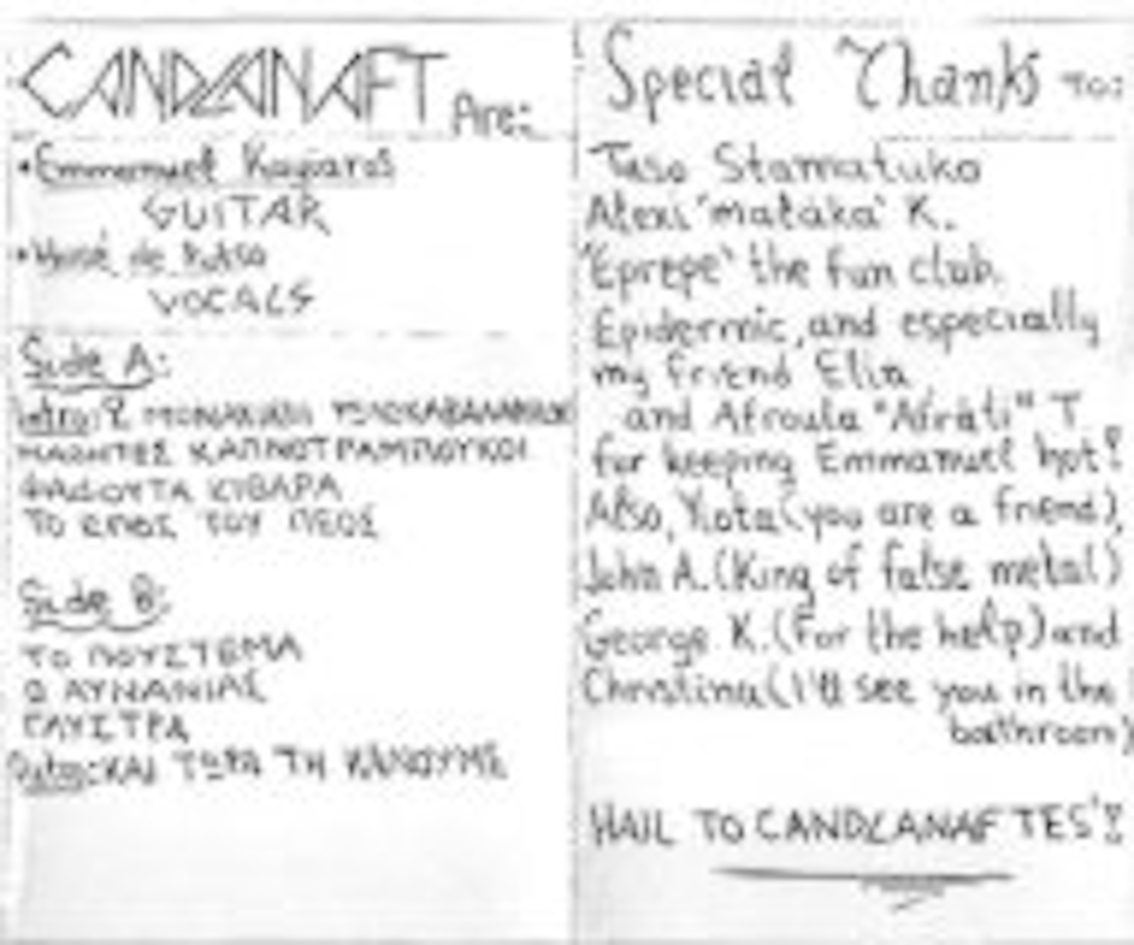 CANDLANAFT Are:
• Emmanuel
GUITAR
• de
VOCALS
Side A:
Intro:
ΚΑΠΝΟΤΡΑΜΠΟΥΚΟΙ
ΚΙΘΑΡΑ
ΤΟ ΕΠΟΣ ΤΟΥ ΠΕΟΣ
Side B:
ΤΟ ΠΟΥΣΤΕΜΑ
Ο ΑΥΝΑΝΙΑΣ
ΓΛΥΣΤΡΑ
Outro: ΚΑΙ ΤΩΡΑ ΤΗ ΚΑΝΟΥΜΕ
Special Thanks To:
Taso Stamatuko
Alexi 'mataka' K.
'Eprepe' the fun club.
Epidermic, and especially
my friend Elia
and Afroula "Afrati" T
for keeping Emmanuel hot!
Also, Yiota (you are a friend),
John A. (King of false metal)
George K. (For the help) and
Christina (I'll see you in the
bathroom)
HAIL TO CANDLANAFTES'!